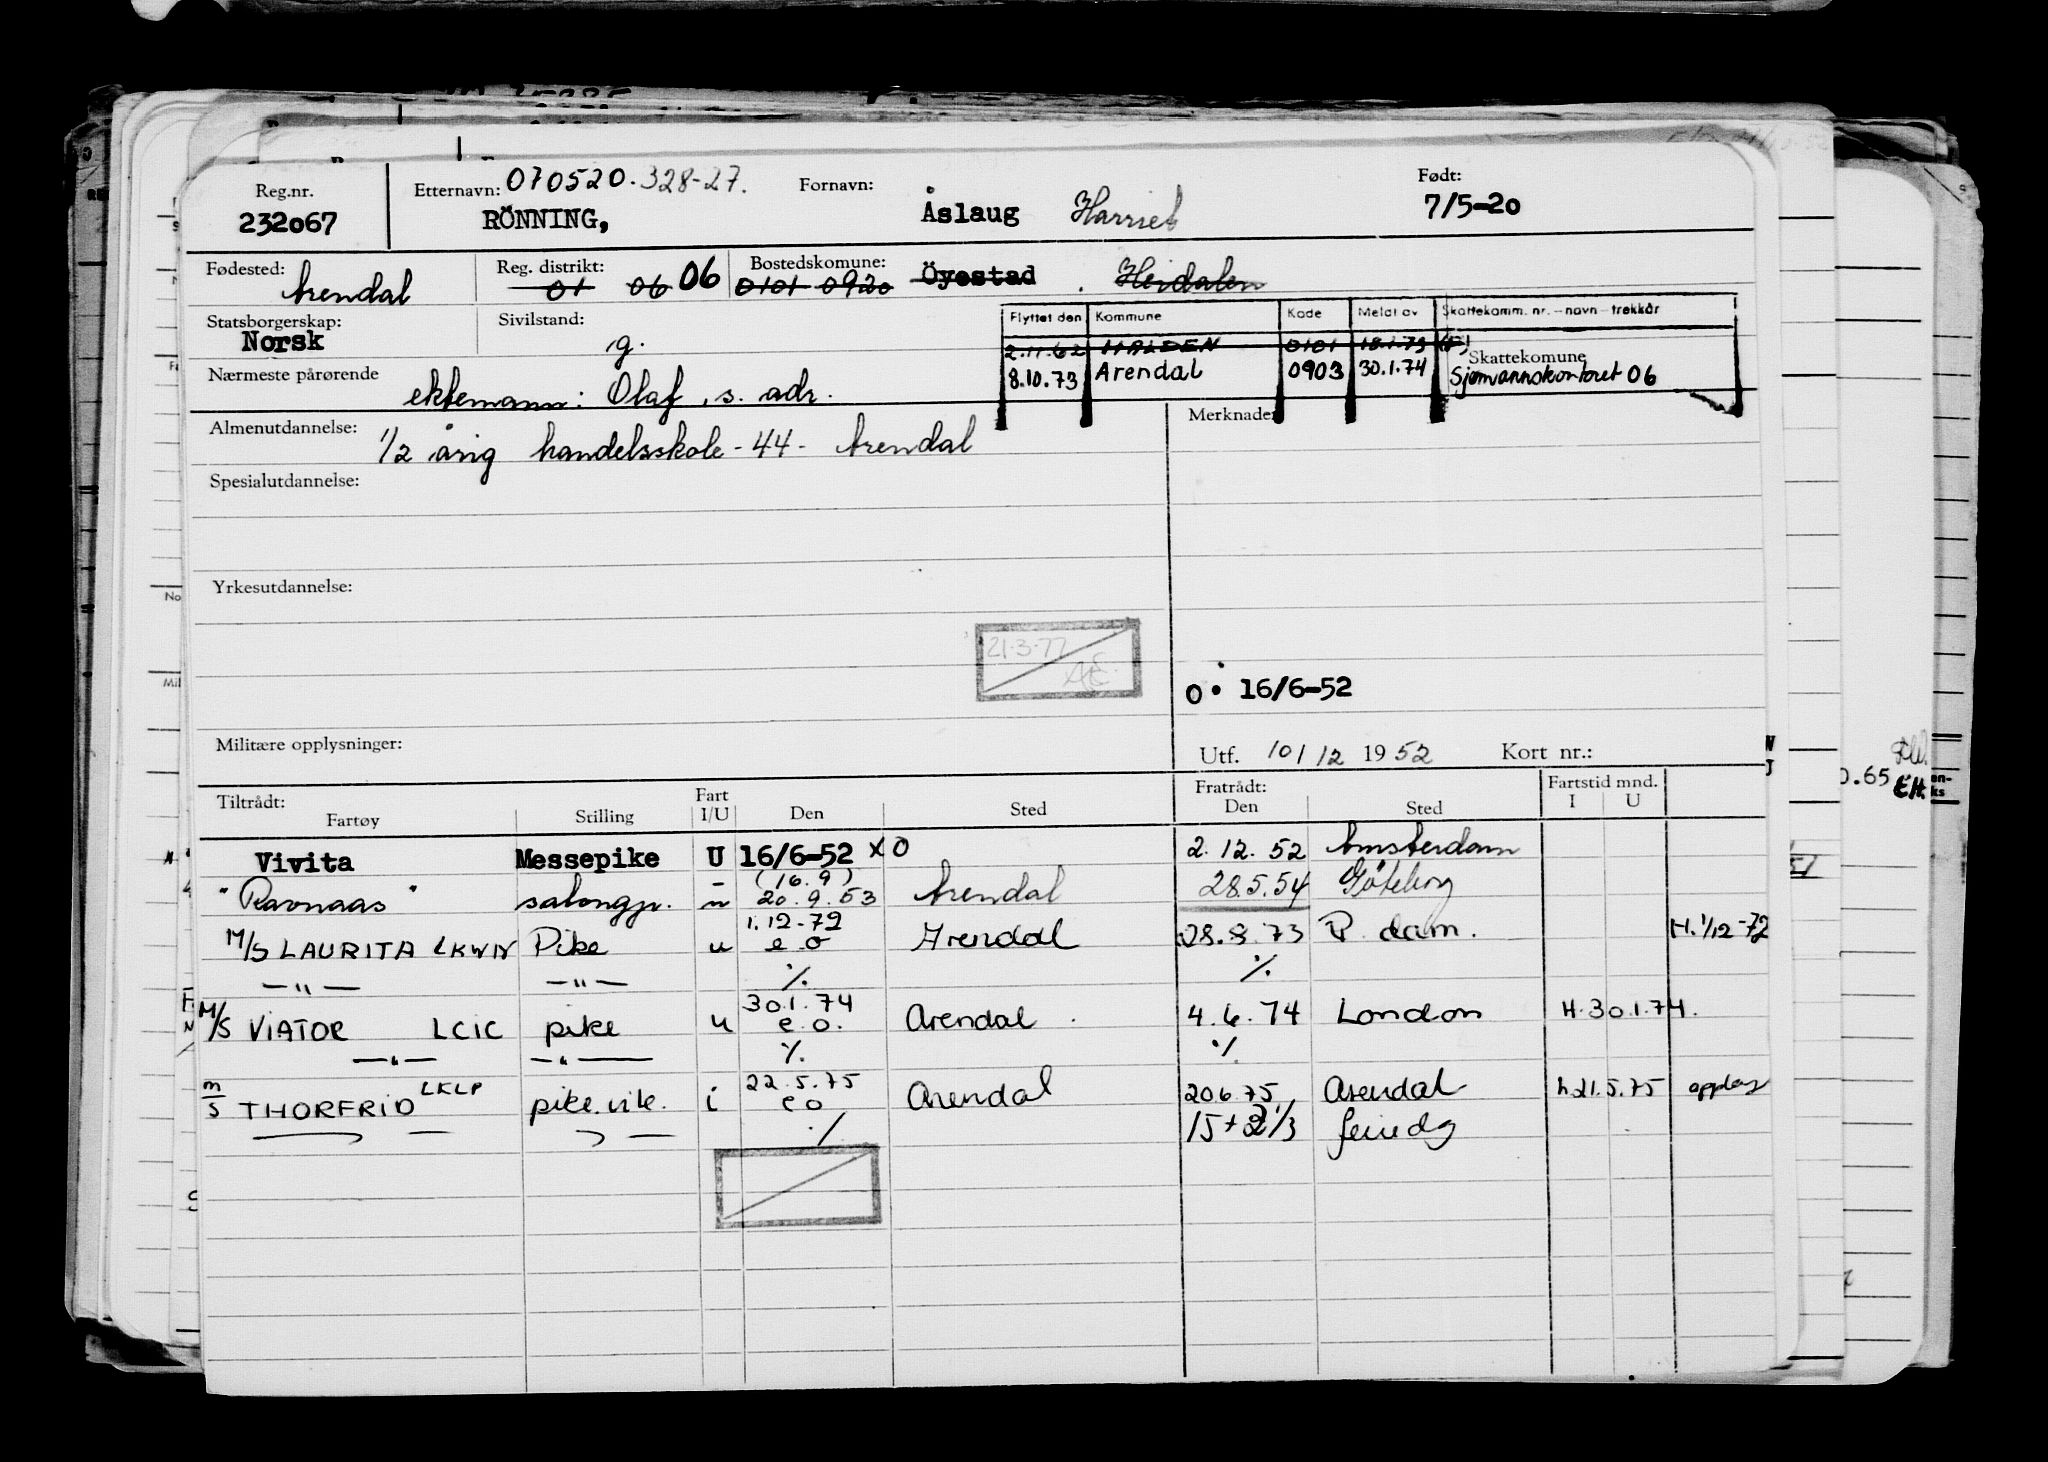 Reg.nr. Etternavn: 070520.328-27. Fornavn: Født:
232067 RÖNNING, Åslaug Harriet 7/5-20
Fødested: Arendal Reg. distrikt: 01 06 06 Bostedskomune: 0101 0920 Öyestad . Heidalen
Statsborgerskap: Norsk Sivilstand: g.
Flyttet den Kommune Kode Meldt av Skattekomm. nr. – navn – trekkår
2.11.62 HALDEN 0101 18.1.73
8.10.73 Arendal 0903 30.1.74 Skattekomune Sjømannskontoret 06
Nærmeste pårørende ektemann: Olaf, s. adr.
Almenutdannelse: 1/2 årig handelsskole - 44 - Arendal Merknader
Spesialutdannelse:
Yrkesutdannelse:
21-3-77
o. 16/6-52
Militære opplysninger: Utf. 10/12 1952 Kort nr.:
Tiltrådt: Fart Fratrådt: Fartstid mnd.
Fartøy Stilling I/U Den Sted Den Sted I U
Vivita Messepike U 16/6-52 x0 2.12.52 Amsterdam
(16.9)
"Ravnaas" salongp. u 20.9.53 Arendal 28.5.54 Göteborg
1.12-72
M/S LAURITA LKWN Pike u e o Arendal 28.8.73 R dam. H.1/12-72
—"— —"— ./. ./.
30.1.74
M/S VIATOR LCIC pike u e.o. Arendal. 4.6.74 London H.30.1.74.
—"— —"— ./. ./.
22.5.75
m/s THORFRID LKLP pike.vik. i e o Arendal 20.6.75 Arendal h21.5.75
./. 15+2 1/3 feriedg